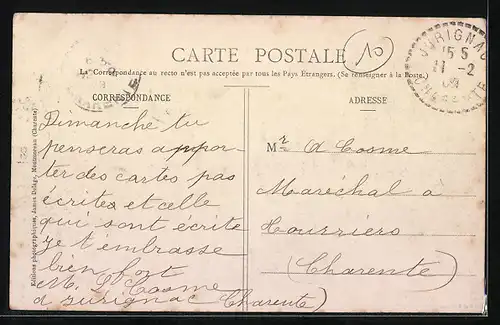 CARTE POSTALE
10
La Correspondance au recto n'est pas acceptée par tous les Pays Etrangers. (Se renseigner à la Poste.)
JURIGNAC
15 5
11-2
09
CHARENTE
CORRESPONDANCE
Dimanche tu
penseras appor-
ter des cartes pas
écrites et celle
qui sont écrite
Je t'embrasse
bien fort
M. L Cosme
a Jurignac Charente
ADRESSE
Mr A Cosme
Maréchal à
Hourriers
(Charente)
Editions photographiques, James Delage, Montmoreau (Charente)